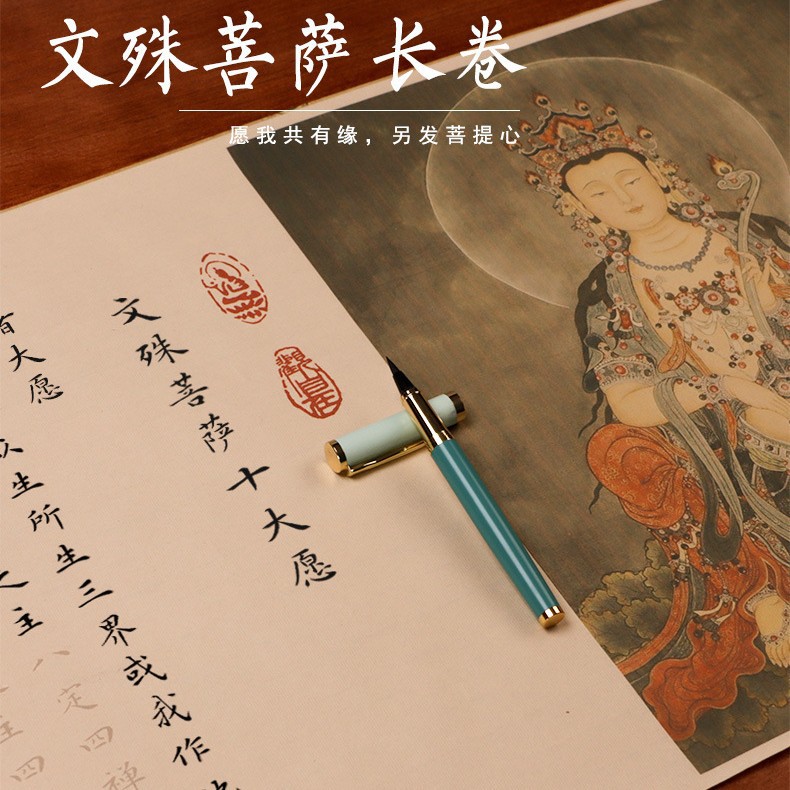 文殊菩萨 长卷
愿我共有缘，另发菩提心
文殊菩萨十大愿
大愿
生所生三界或我作
主八定四禅
主四